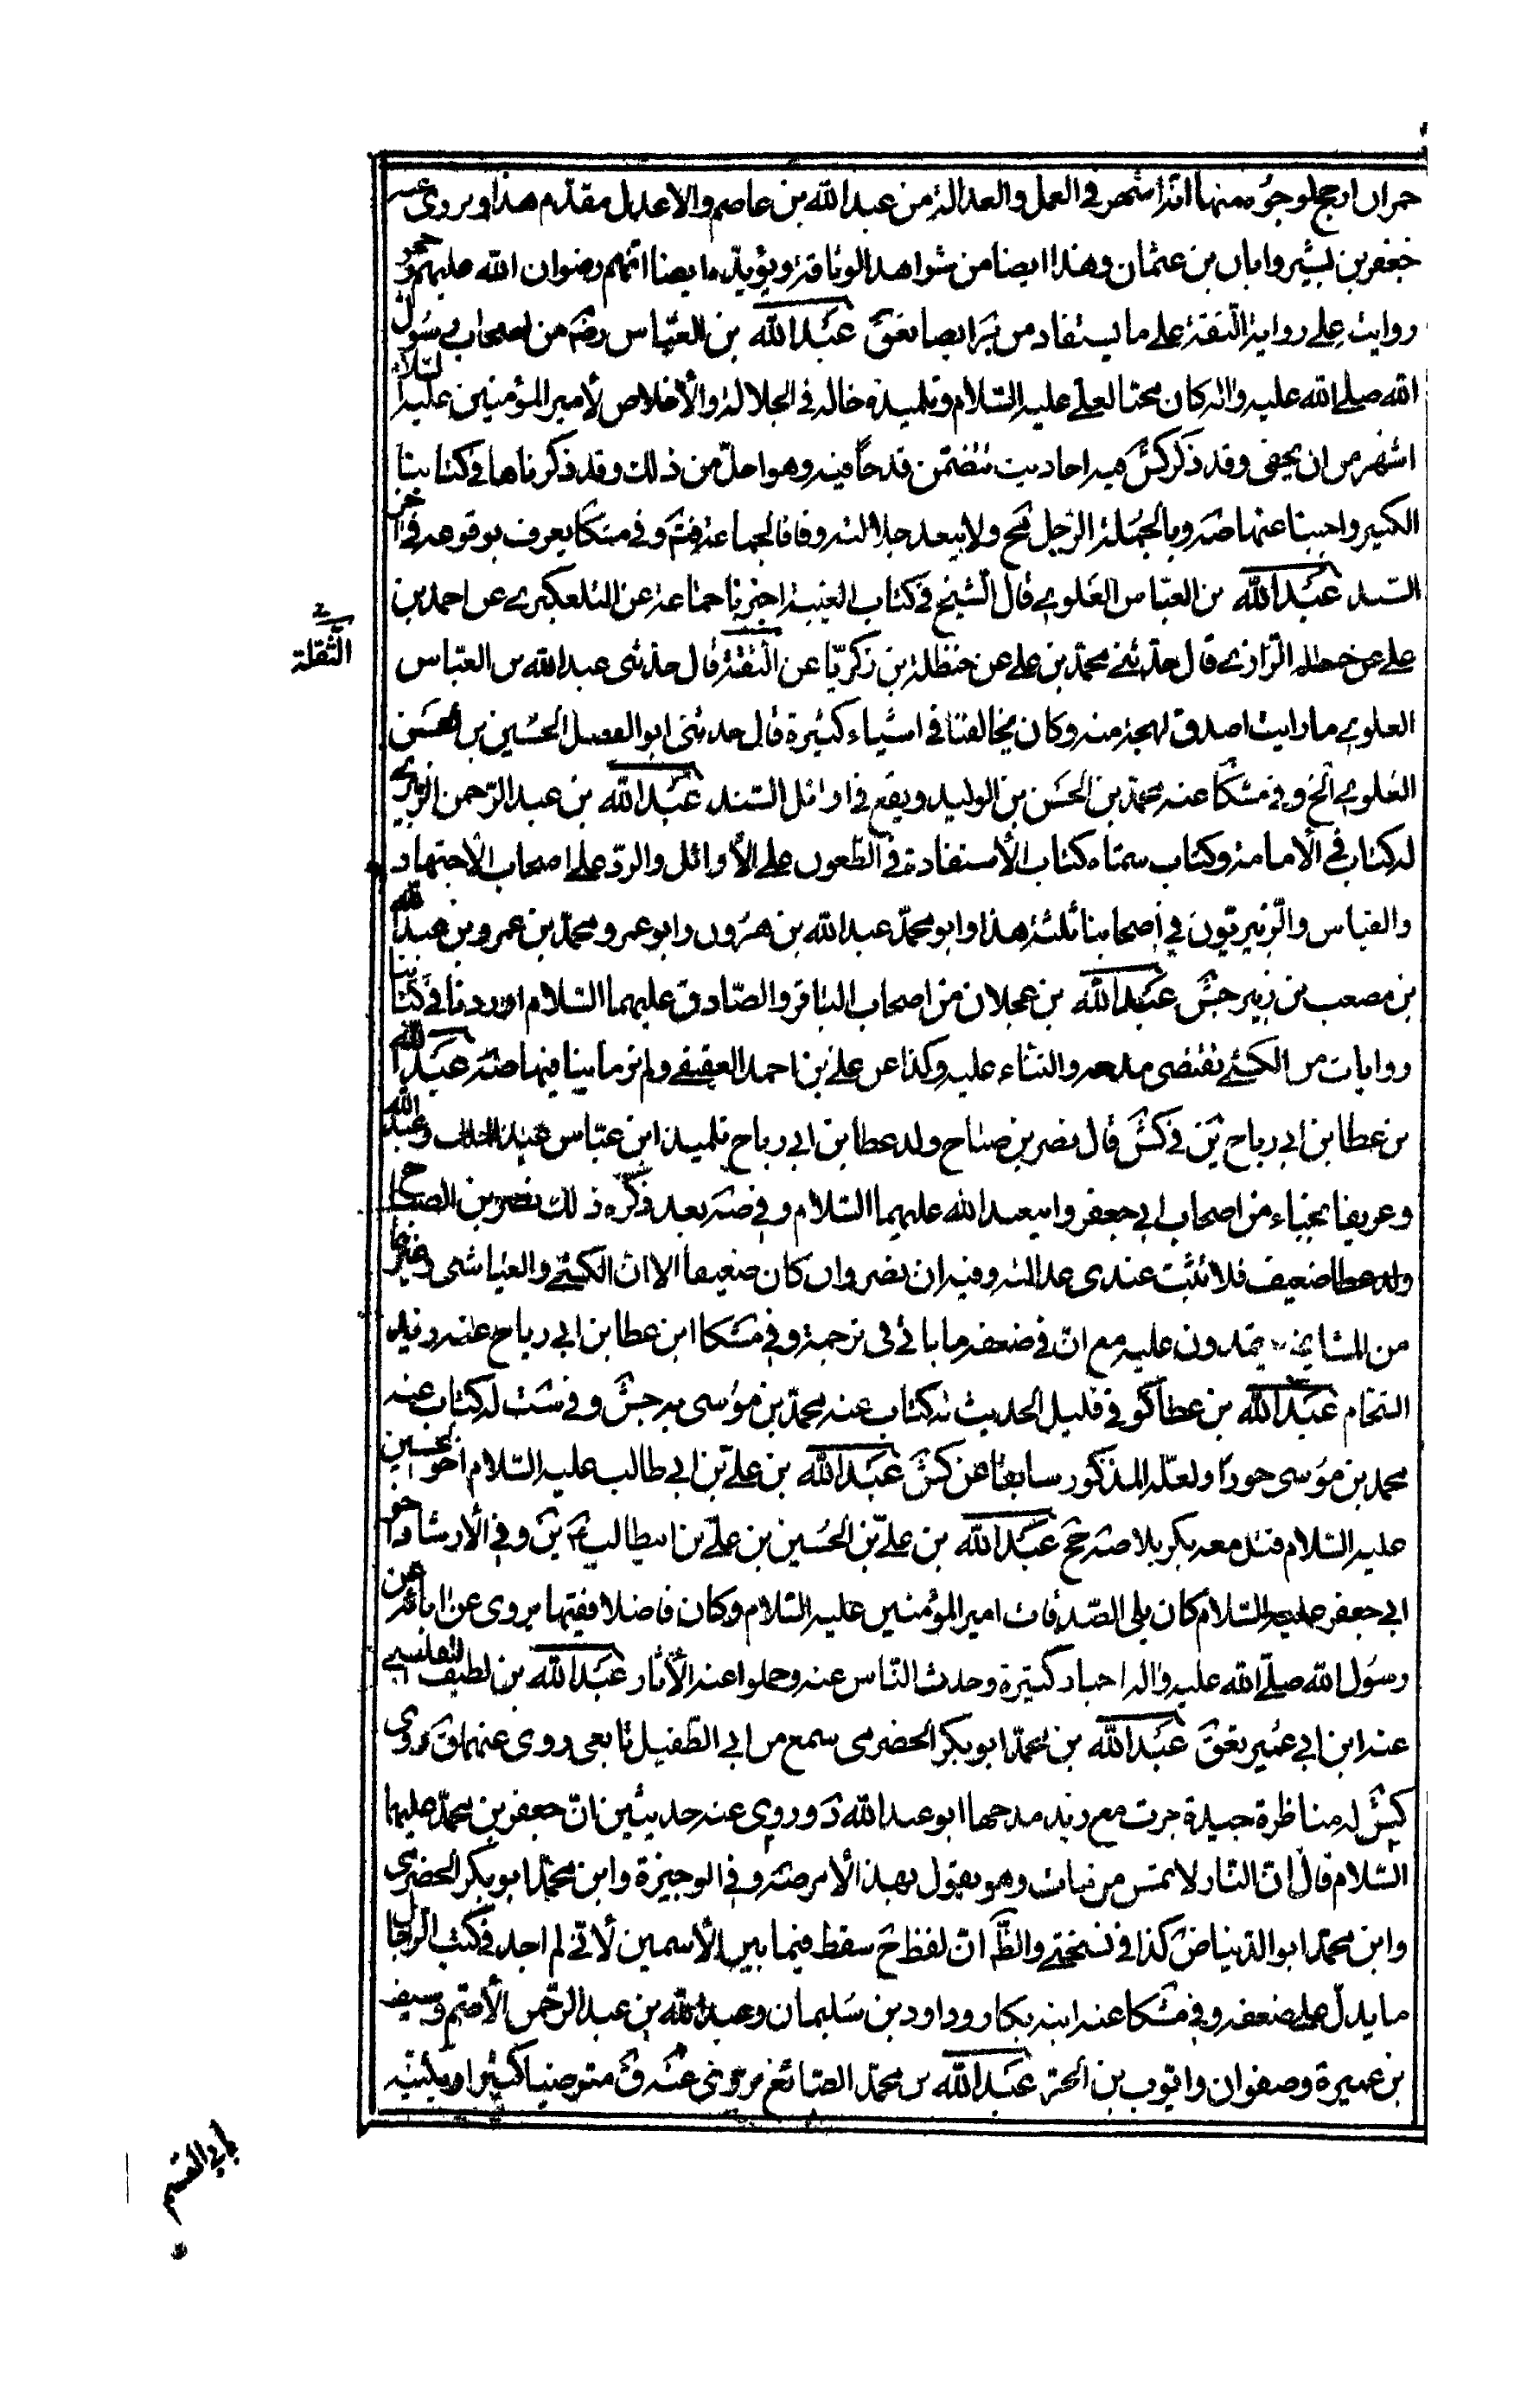 حمران ارجح لوجوه منها انه اشهر في العمل والعدالة من عبد الله بن عاصم والاعدل مقدم هذا ويروى عنه
جعفر بن بشير وابان بن عثمان وهذا ايضا من شواهد الوثاقة ويؤيده ايضا انهم رضوان الله عليهم
روايته على رواية الثقة على ما يستفاد من ايضا تعق عبد الله بن العباس رضه من اصحاب رسول
الله صلى الله عليه واله كان محبا لعلي عليه السلام وتلميذه حاله في الجلالة والأخلاص لأمير المؤمنين عليه السلام
اشهر من ان يخفى وقد ذكر كش فيه احاديث تتضمن قدحا فيه وهو اجل من ذلك وقد ذكرناها في كتابنا
الكبير واجبنا عنها صه وبالجملة الرجل ولا يبعد جلالته وفاقا لجماعة وفي مشكا يعرف بوقوعه في اخر
السند عبد الله بن العباس العلوي قال الشيخ في كتاب الغيبة اخبرنا جماعة عن التلعكبري عن احمد بن
علي عن الرازي قال حدثني محمد بن علي عن حنظلة بن زكريا عن الثقة قال حدثنى عبد الله بن العباس
الثقلة
العلوي ما رايت اصدق لهجة منه وكان يخالفنا في اشياء كثيرة قال حدثنى ابو الفضل الحسين بن الحسن
العلوي الخ وفي مشكا عنه محمد بن الحسن بن الوليد ويقع في اوائل السند عبد الله بن عبد الرحمن الزبيري
له كتاب في الأمامة وكتاب سماه كتاب الأستفادة في الطعون على الأوائل والرد على اصحاب الاجتهاد
والقياس والزبيريون في اصحابنا ثلثة هذا وابو محمد عبد الله بن هرون وابو عمرو محمد بن عمرو بن عبد الله
بن مصعب بن زبير جش عبد الله بن عجلان من اصحاب الباقر والصادق عليهما السلام اوردنا في كتابنا
روايات من الكشي تقتضى مدحه والثناء عليه وكذا عن علي بن احمد العقيقي ولم نر ما ينافيها صه عبد الله
بن عطا بن ابي رباح ين في كش قال نصر بن صباح ولد عطا بن ابي رباح تلميذ ابن عباس عبد الملك وعبد الله
وعريفا نجباء من اصحاب ابي جعفر وابيعبد الله عليهما السلام وفي صه بعد ذكره ذلك نصر بن الصباح
ولد عطا ضعيف فلا تثبت عندى عدالته وفيه ان نصر وان كان ضعيفا الا ان الكشي والعياشى وغيرهما
من المشايخ يعتمدون عليه مع ان في ضعفه ما ياتى فى ترجمة وفي مشكا ابن عطا بن ابي رباح عنه زيد
الشحام عبد الله بن عطا كوفي قليل الحديث له كتاب عنه محمد بن موسى جش وفي ست له كتاب عنه
محمد بن موسى حورا ولعله المذكور سابقا عن كش عبد الله بن علي بن ابي طالب عليه السلام اخو الحسين
عليه السلام قتل معه بكربلا صه جخ عبد الله بن علي بن الحسين بن علي بن ابيطالب ين وفي الأرشاد اخو
ابي جعفر عليه السلام كان يلى الصدقات امير المؤمنين عليه السلام وكان فاضلا فقيها يروى عن ابائه عن
رسول الله صلى الله عليه واله اخبار كثيرة وحدث الناس عنه وحملوا عنه الأثار عبد الله بن لطيف التفليسي
عنه ابن ابي عمير تعق عبد الله بن محمد ابو بكر الحضرمى سمع من ابي الطفيل تابعى روى عنهما ق روى
كش له مناظرة جيدة جرت مع زيد مدحها ابو عبد الله وروى عنه حديثين ان جعفر بن محمد عليهما
السلام قال ان النار لا تمس من مات وهو يقول بهذا الأمر صه وفي الوجيزة وابن محمد ابو بكر الحضرمى
وابن محمد ابو الدنيا ض كذا في نسختي والظ ان لفظ ح سقط فيما بين الأسمين لأني لم اجد في كتب الرجال
ما يدل على ضعفه وفي مشكا عنه ابنه بكار وداود بن سليمان وعبد الله بن عبد الرحمن الأصم وسيف
بن عميرة وصفوان وايوب بن الحر عبد الله بن محمد الصائغ مترضيا كثيرا ويكنيه
بابي القسم